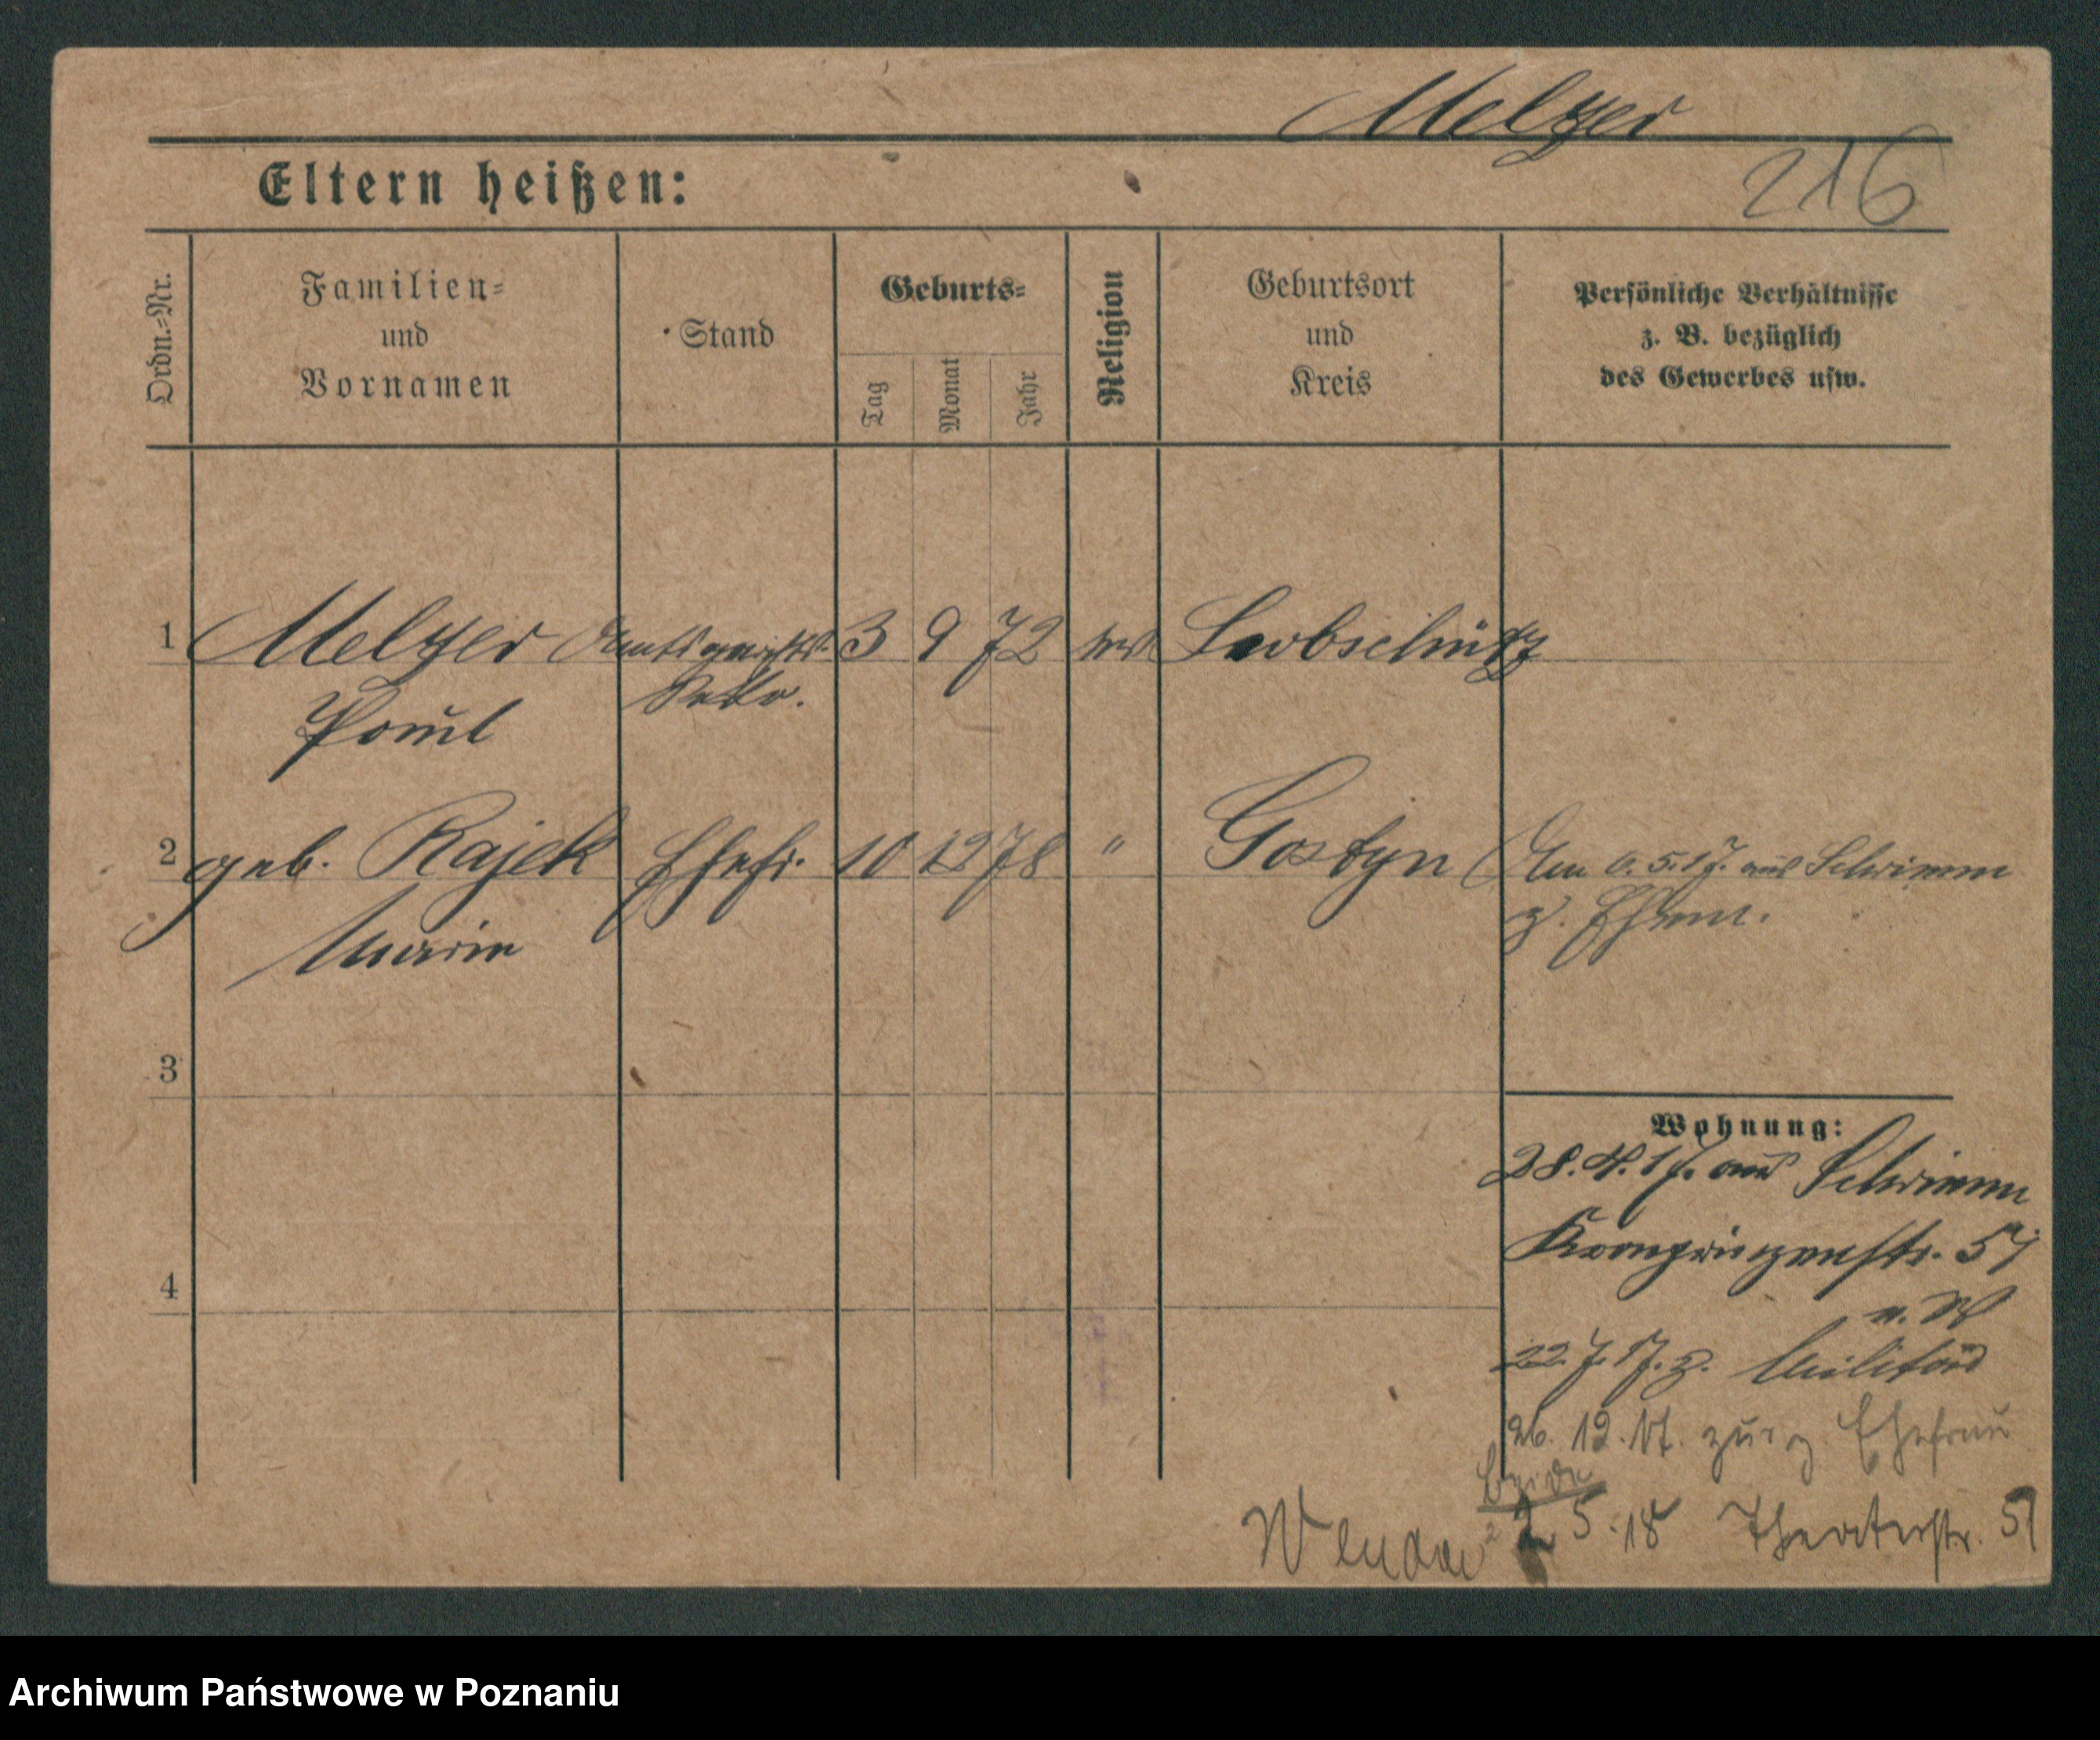 Melzer
216
Eltern heißen:
Ordn.=Nr.
Familien=
und
Vornamen
Stand
Geburts=
Tag
Monat
Jahr
Religion
Geburtsort
und
Kreis
Persönliche Verhältnisse
z. B. bezüglich
des Gewerbes usw.
1 Melzer Amtsgerichts- 3 9 72 Leobschütz
Sekr.
Paul
2 geb. Rajek Ehefr. 10 12 78 " Gostyn Am 6.5.17. aus Schrimm
z. Ehem.
Marie
3
Wohnung:
28.4.17. aus Schrimm
Kronprinzenstr. 57
4
22.7.17. z. Militär
26.12.17. zur Ehefrau
beide
2 5.18 Theaterstr. 5
Archiwum Państwowe w Poznaniu